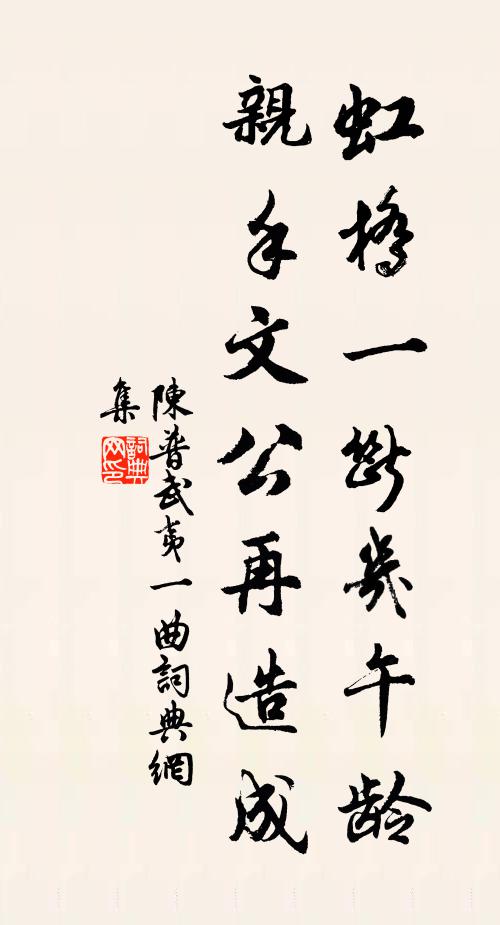 虹橋一斷幾午齡
親手文公再造成
陳普武夷一曲詞典網
集
詞典網印